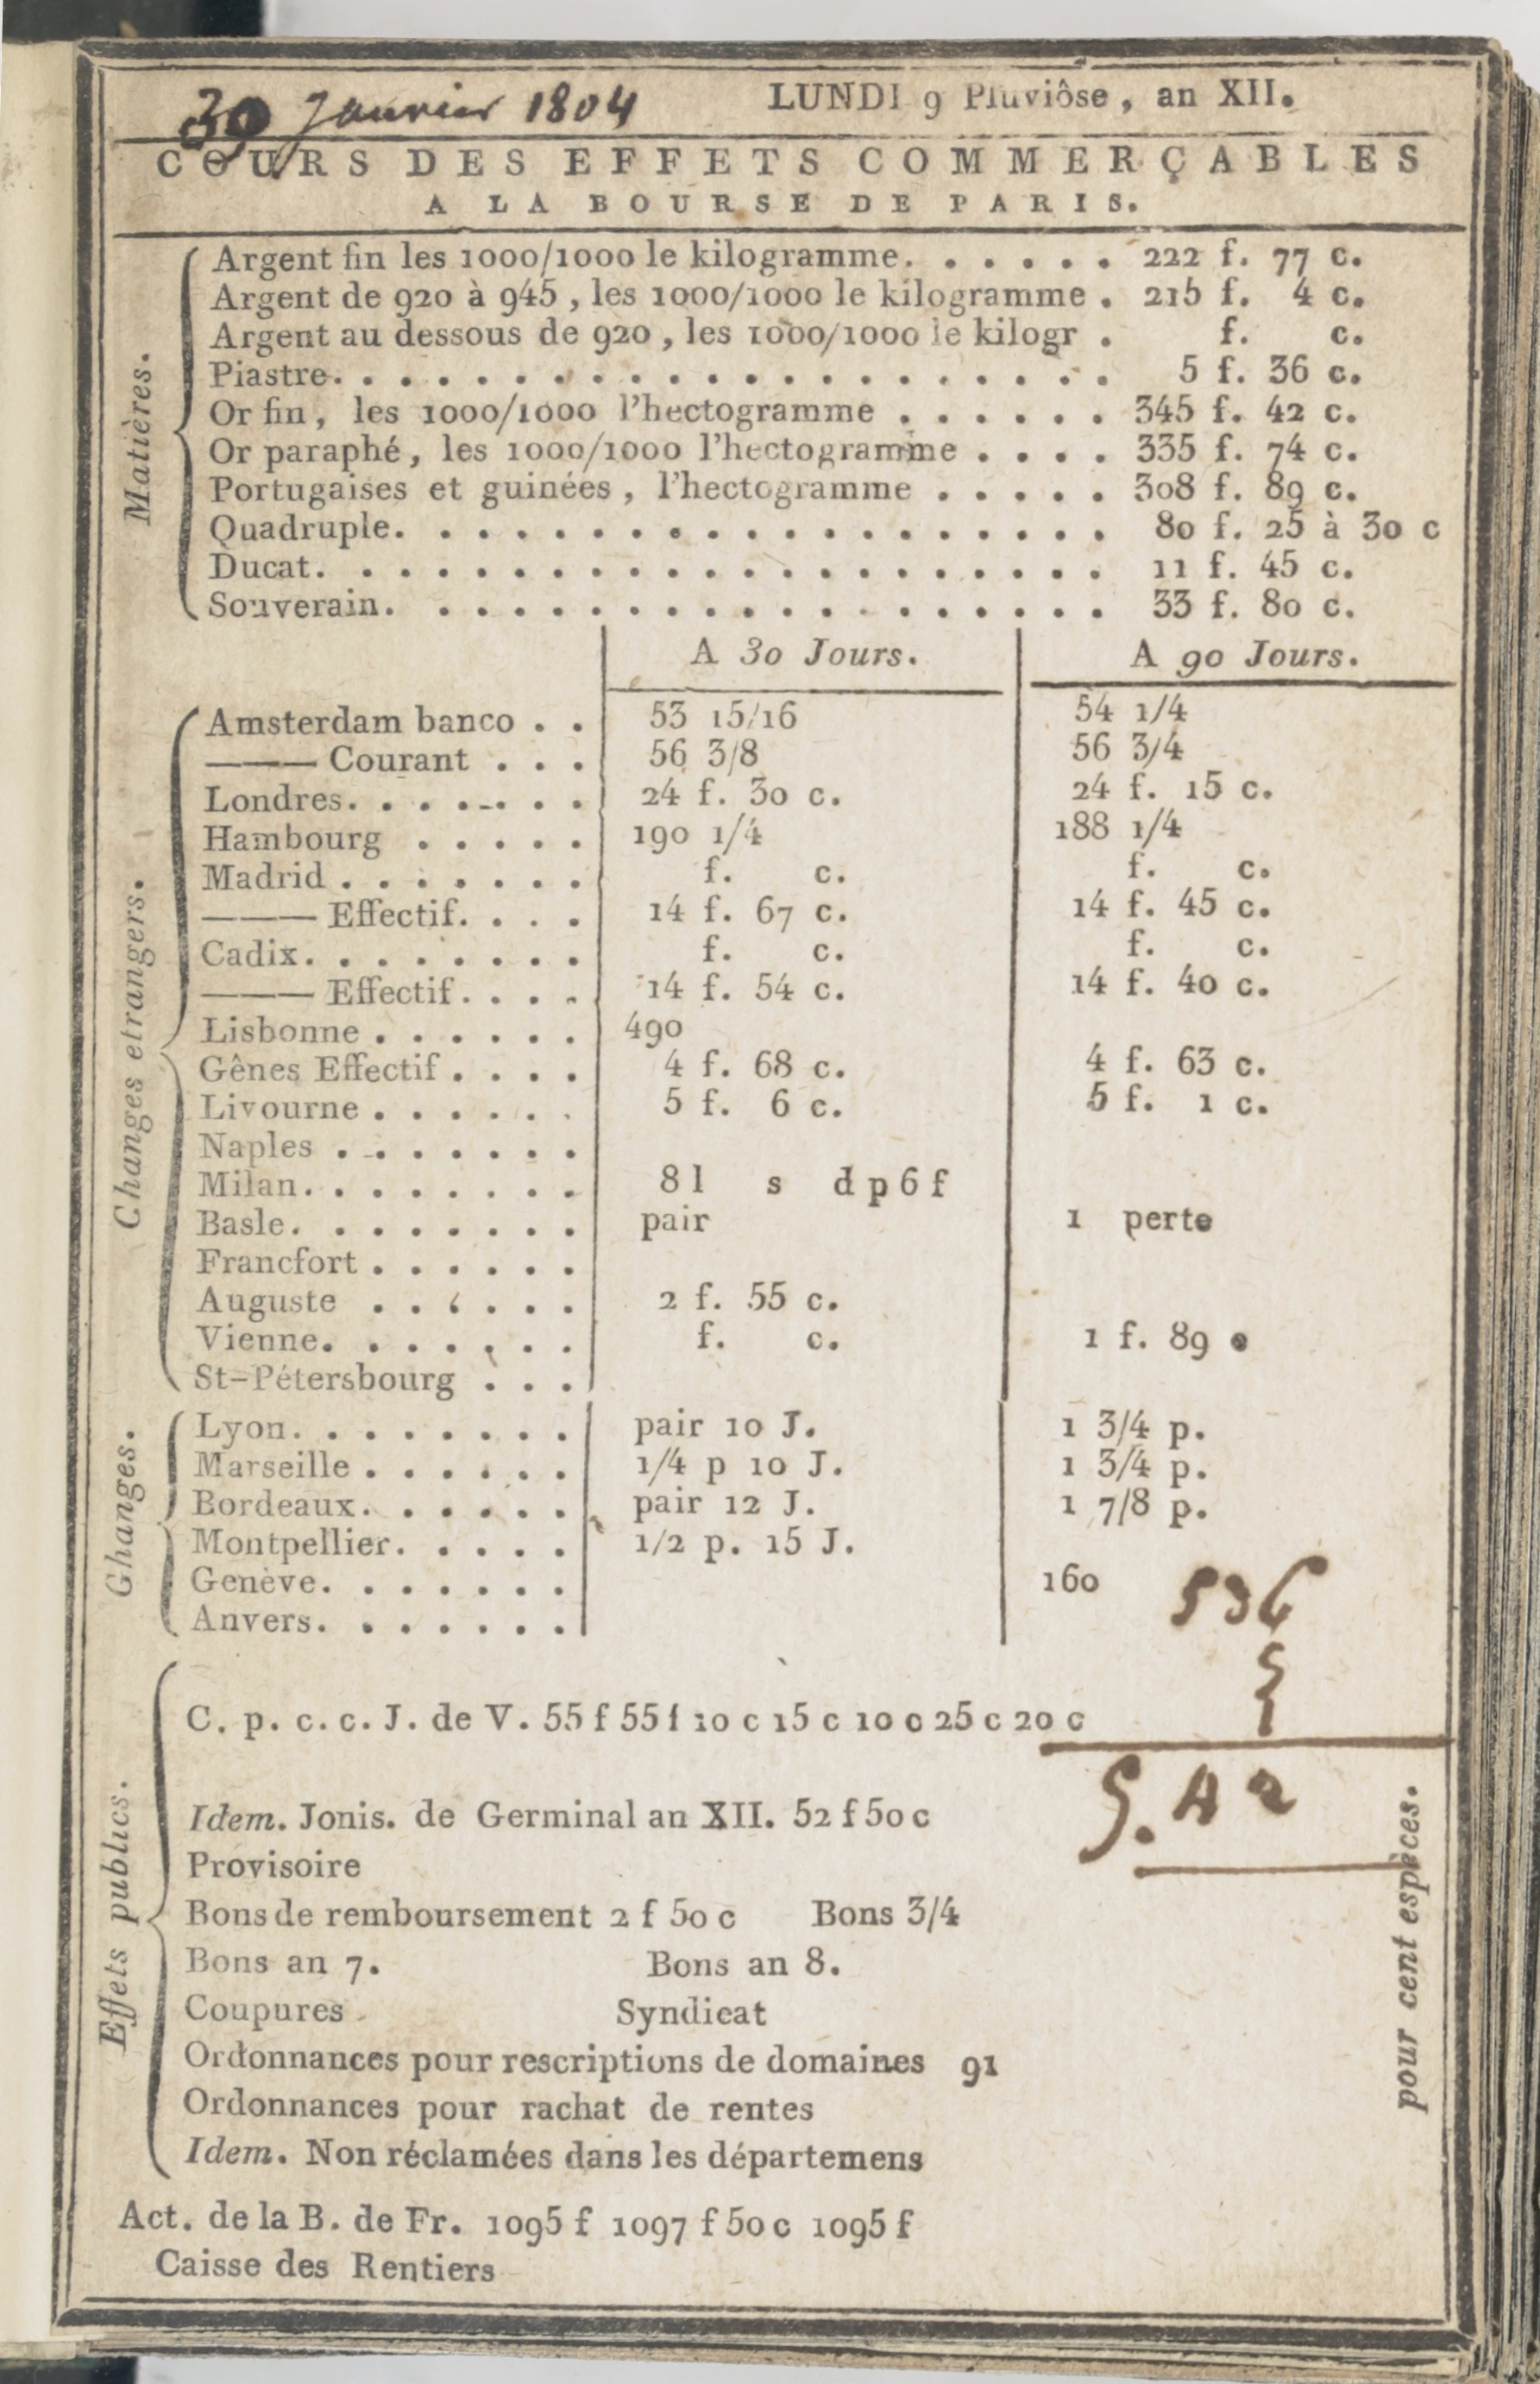 30 Janvier 1804 LUNDI 9 Pluviôse, an XII.
COURS DES EFFETS COMMERÇABLES
A LA BOURSE DE PARIS.
Matières.
Argent fin les 1000/1000 le kilogramme. . . . . . 222 f. 77 c.
Argent de 920 à 945, les 1000/1000 le kilogramme . 215 f. 4 c.
Argent au dessous de 920, les 1000/1000 le kilogr . f. c.
Piastre. . . . . . . . . . . . . . . . . . . . . 5 f. 36 c.
Or fin, les 1000/1000 l'hectogramme . . . . . . 345 f. 42 c.
Or paraphé, les 1000/1000 l'hectogramme . . . . 335 f. 74 c.
Portugaises et guinées, l'hectogramme . . . . . 308 f. 89 c.
Quadruple. . . . . . . . . . . . . . . . . . . 80 f. 25 à 30 c
Ducat. . . . . . . . . . . . . . . . . . . . . 11 f. 45 c.
Souverain. . . . . . . . . . . . . . . . . . . 33 f. 80 c.
A 30 Jours. A 90 Jours.
Changes etrangers.
Amsterdam banco . . 53 15/16 54 1/4
——— Courant . . . 56 3/8 56 3/4
Londres. . . . . . . 24 f. 30 c. 24 f. 15 c.
Hambourg . . . . . 190 1/4 188 1/4
Madrid . . . . . . . f. c. f. c.
——— Effectif. . . . 14 f. 67 c. 14 f. 45 c.
Cadix. . . . . . . . f. c. f. c.
——— Effectif. . . . 14 f. 54 c. 14 f. 40 c.
Lisbonne . . . . . . 490
Gênes Effectif . . . . 4 f. 68 c. 4 f. 63 c.
Livourne . . . . . . 5 f. 6 c. 5 f. 1 c.
Naples . . . . . . .
Milan. . . . . . . . 8 l s d p 6 f
Basle. . . . . . . . pair 1 perte
Francfort . . . . . .
Auguste . . . . . . 2 f. 55 c.
Vienne. . . . . . . f. c. 1 f. 89 c
St-Pétersbourg . . .
Ghanges.
Lyon. . . . . . . . pair 10 J. 1 3/4 p.
Marseille . . . . . . 1/4 p 10 J. 1 3/4 p.
Bordeaux. . . . . . pair 12 J. 1 7/8 p.
Montpellier. . . . . 1/2 p. 15 J.
Genève. . . . . . . 160
Anvers. . . . . . .
536
5
Effets publics.
C. p. c. c. J. de V. 55 f 55 f 10 c 15 c 10 c 25 c 20 c
Idem. Jonis. de Germinal an XII. 52 f 50 c
Provisoire
Bons de remboursement 2 f 50 c Bons 3/4
Bons an 7. Bons an 8.
Coupures Syndicat
Ordonnances pour rescriptions de domaines 91
Ordonnances pour rachat de rentes
Idem. Non réclamées dans les départemens
pour cent espèces.
Act. de la B. de Fr. 1095 f 1097 f 50 c 1095 f
Caisse des Rentiers